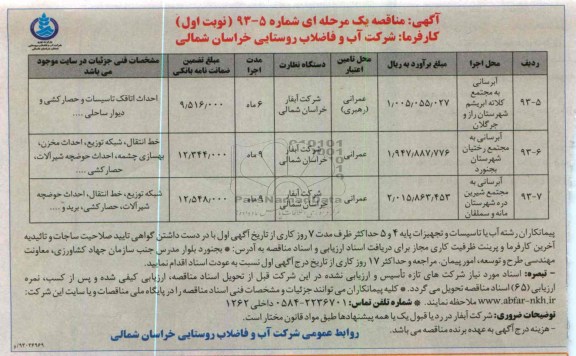 آگهی: مناقصه یک مرحله ای شماره ۵-۹۳ (نوبت اول)
کارفرما: شرکت آب و فاضلاب روستایی خراسان شمالی
ردیف | محل اجرا | مبلغ برآورد به ریال | محل تامین اعتبار | دستگاه نظارت | مدت اجرا | مبلغ تضمین ضمانت نامه بانکی | مشخصات فنی جزئیات در سایت موجود می باشد
۹۳-۵ | آبرسانی به مجتمع کلاته ابریشم شهرستان راز و جرگلان | ۱/۰۰۵/۰۵۵/۰۲۷ | عمرانی (رهبری) | شرکت آبفار خراسان شمالی | ۶ ماه | ۹/۵۱۶/۰۰۰ | احداث اتاقک تاسیسات و حصارکشی و دیوار ساحلی ....
۹۳-۶ | آبرسانی به مجتمع رختیان شهرستان بجنورد | ۱/۹۴۷/۸۸۷/۷۷۶ | عمرانی | شرکت آبفار خراسان شمالی | ۹ ماه | ۱۲/۳۴۴/۰۰۰ | خط انتقال، شبکه توزیع، احداث مخزن، بهسازی چشمه، احداث حوضچه شیرآلات، حصارکشی ....
۹۳-۷ | آبرسانی به مجتمع شیرین دره شهرستان مانه و سملقان | ۲/۰۱۵/۸۶۳/۴۵۳ | عمرانی | شرکت آبفار خراسان شمالی | ۹ ماه | ۱۲/۵۴۸/۰۰۰ | شبکه توزیع، خط انتقال، احداث حوضچه شیرآلات، حصارکشی، برید و ....
پیمانکاران رشته آب یا تاسیسات و تجهیزات پایه ۴ و ۵ حداکثر ظرف مدت ۷ روز کاری از تاریخ آگهی اول با در دست داشتن گواهی تایید صلاحیت ساجات و تائیدیه
آخرین کارفرما و پرینت ظرفیت کاری مجاز برای دریافت اسناد ارزیابی و اسناد مناقصه به آدرس: * بجنورد بلوار مدرس جنب سازمان جهاد کشاورزی، معاونت
مهندسی طرح و توسعه، امور پیمان. مراجعه و حداکثر ۱۷ روز کاری از تاریخ درج آگهی اول نسبت به عودت اسناد اقدام نمایند.
- تبصره: اسناد مورد نیاز شرکت های تازه تأسیس و ارزیابی نشده در این شرکت قبل از تحویل اسناد مناقصه، ارزیابی کیفی شده و پس از کسب، نمره
ارزیابی (۶۵) اسناد مناقصه تحویل می گردد. * کلیه پیمانکاران می توانند جزئیات و مشخصات فنی اسناد مناقصه را در پایگاه ملی مناقصات و یا سایت این شرکت:
www.abfar-nkh.ir ملاحظه نمایند. * شماره تلفن تماس: ۲۲۳۶۷۰۱-۰۵۸۴ داخلی ۱۲۶۲
توضیحات ضروری: شرکت آبفار در رد یا قبول یک یا همه پیشنهادها طبق مواد قانون مختار است.
- هزینه درج آگهی به عهده برنده مناقصه می باشد.
روابط عمومی شرکت آب و فاضلاب روستایی خراسان شمالی